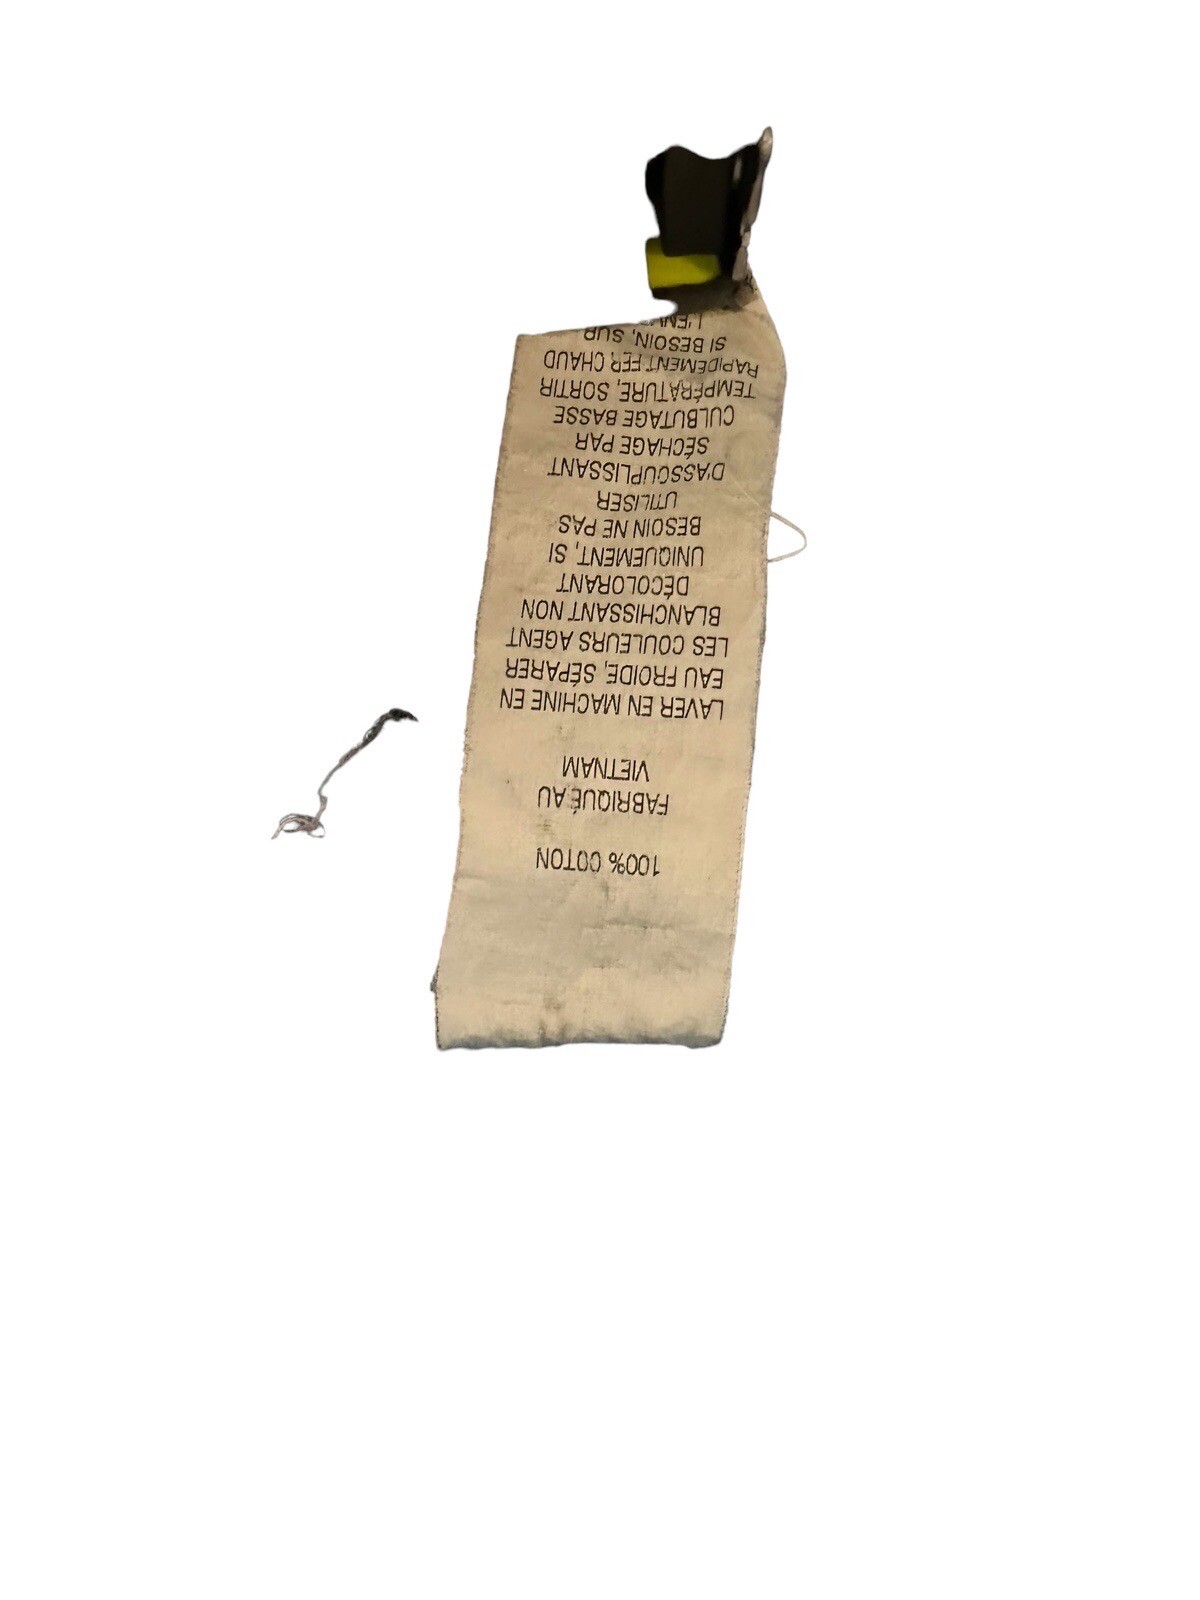 100% COTON
FABRIQUÉ AU
VIETNAM
LAVER EN MACHINE EN
EAU FROIDE, SÉPARER
LES COULEURS AGENT
BLANCHISSANT NON
DÉCOLORANT
UNIQUEMENT, SI
BESOIN NE PAS
UTILISER
D'ASSOUPLISSANT
SÉCHAGE PAR
CULBUTAGE BASSE
TEMPÉRATURE, SORTIR
RAPIDEMENT FER CHAUD
SI BESOIN, SUR